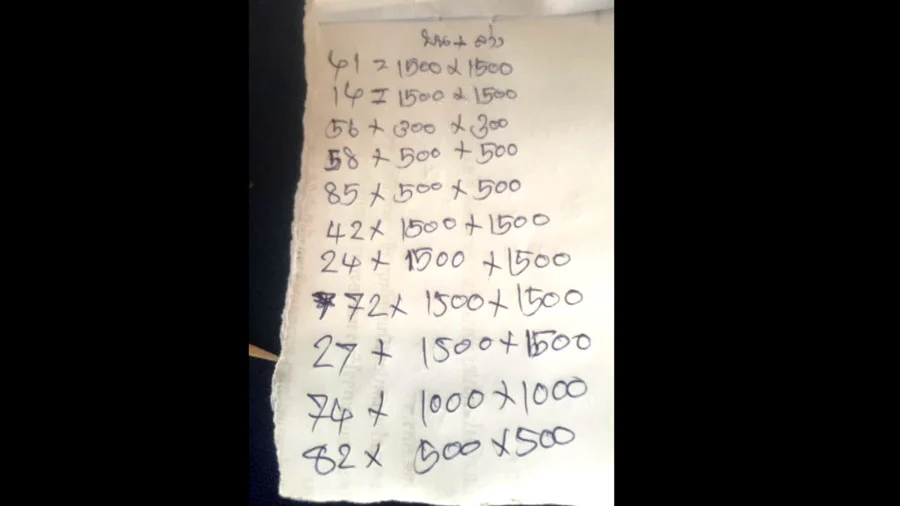 บน + ล่าง
41 = 1500 x 1500
14 = 1500 x 1500
56 x 300 x 300
58 x 500 + 500
85 x 500 x 500
42 x 1500 + 1500
24 + 1500 + 1500
72 x 1500 x 1500
27 + 1500 + 1500
74 + 1000 x 1000
82 x 500 x 500